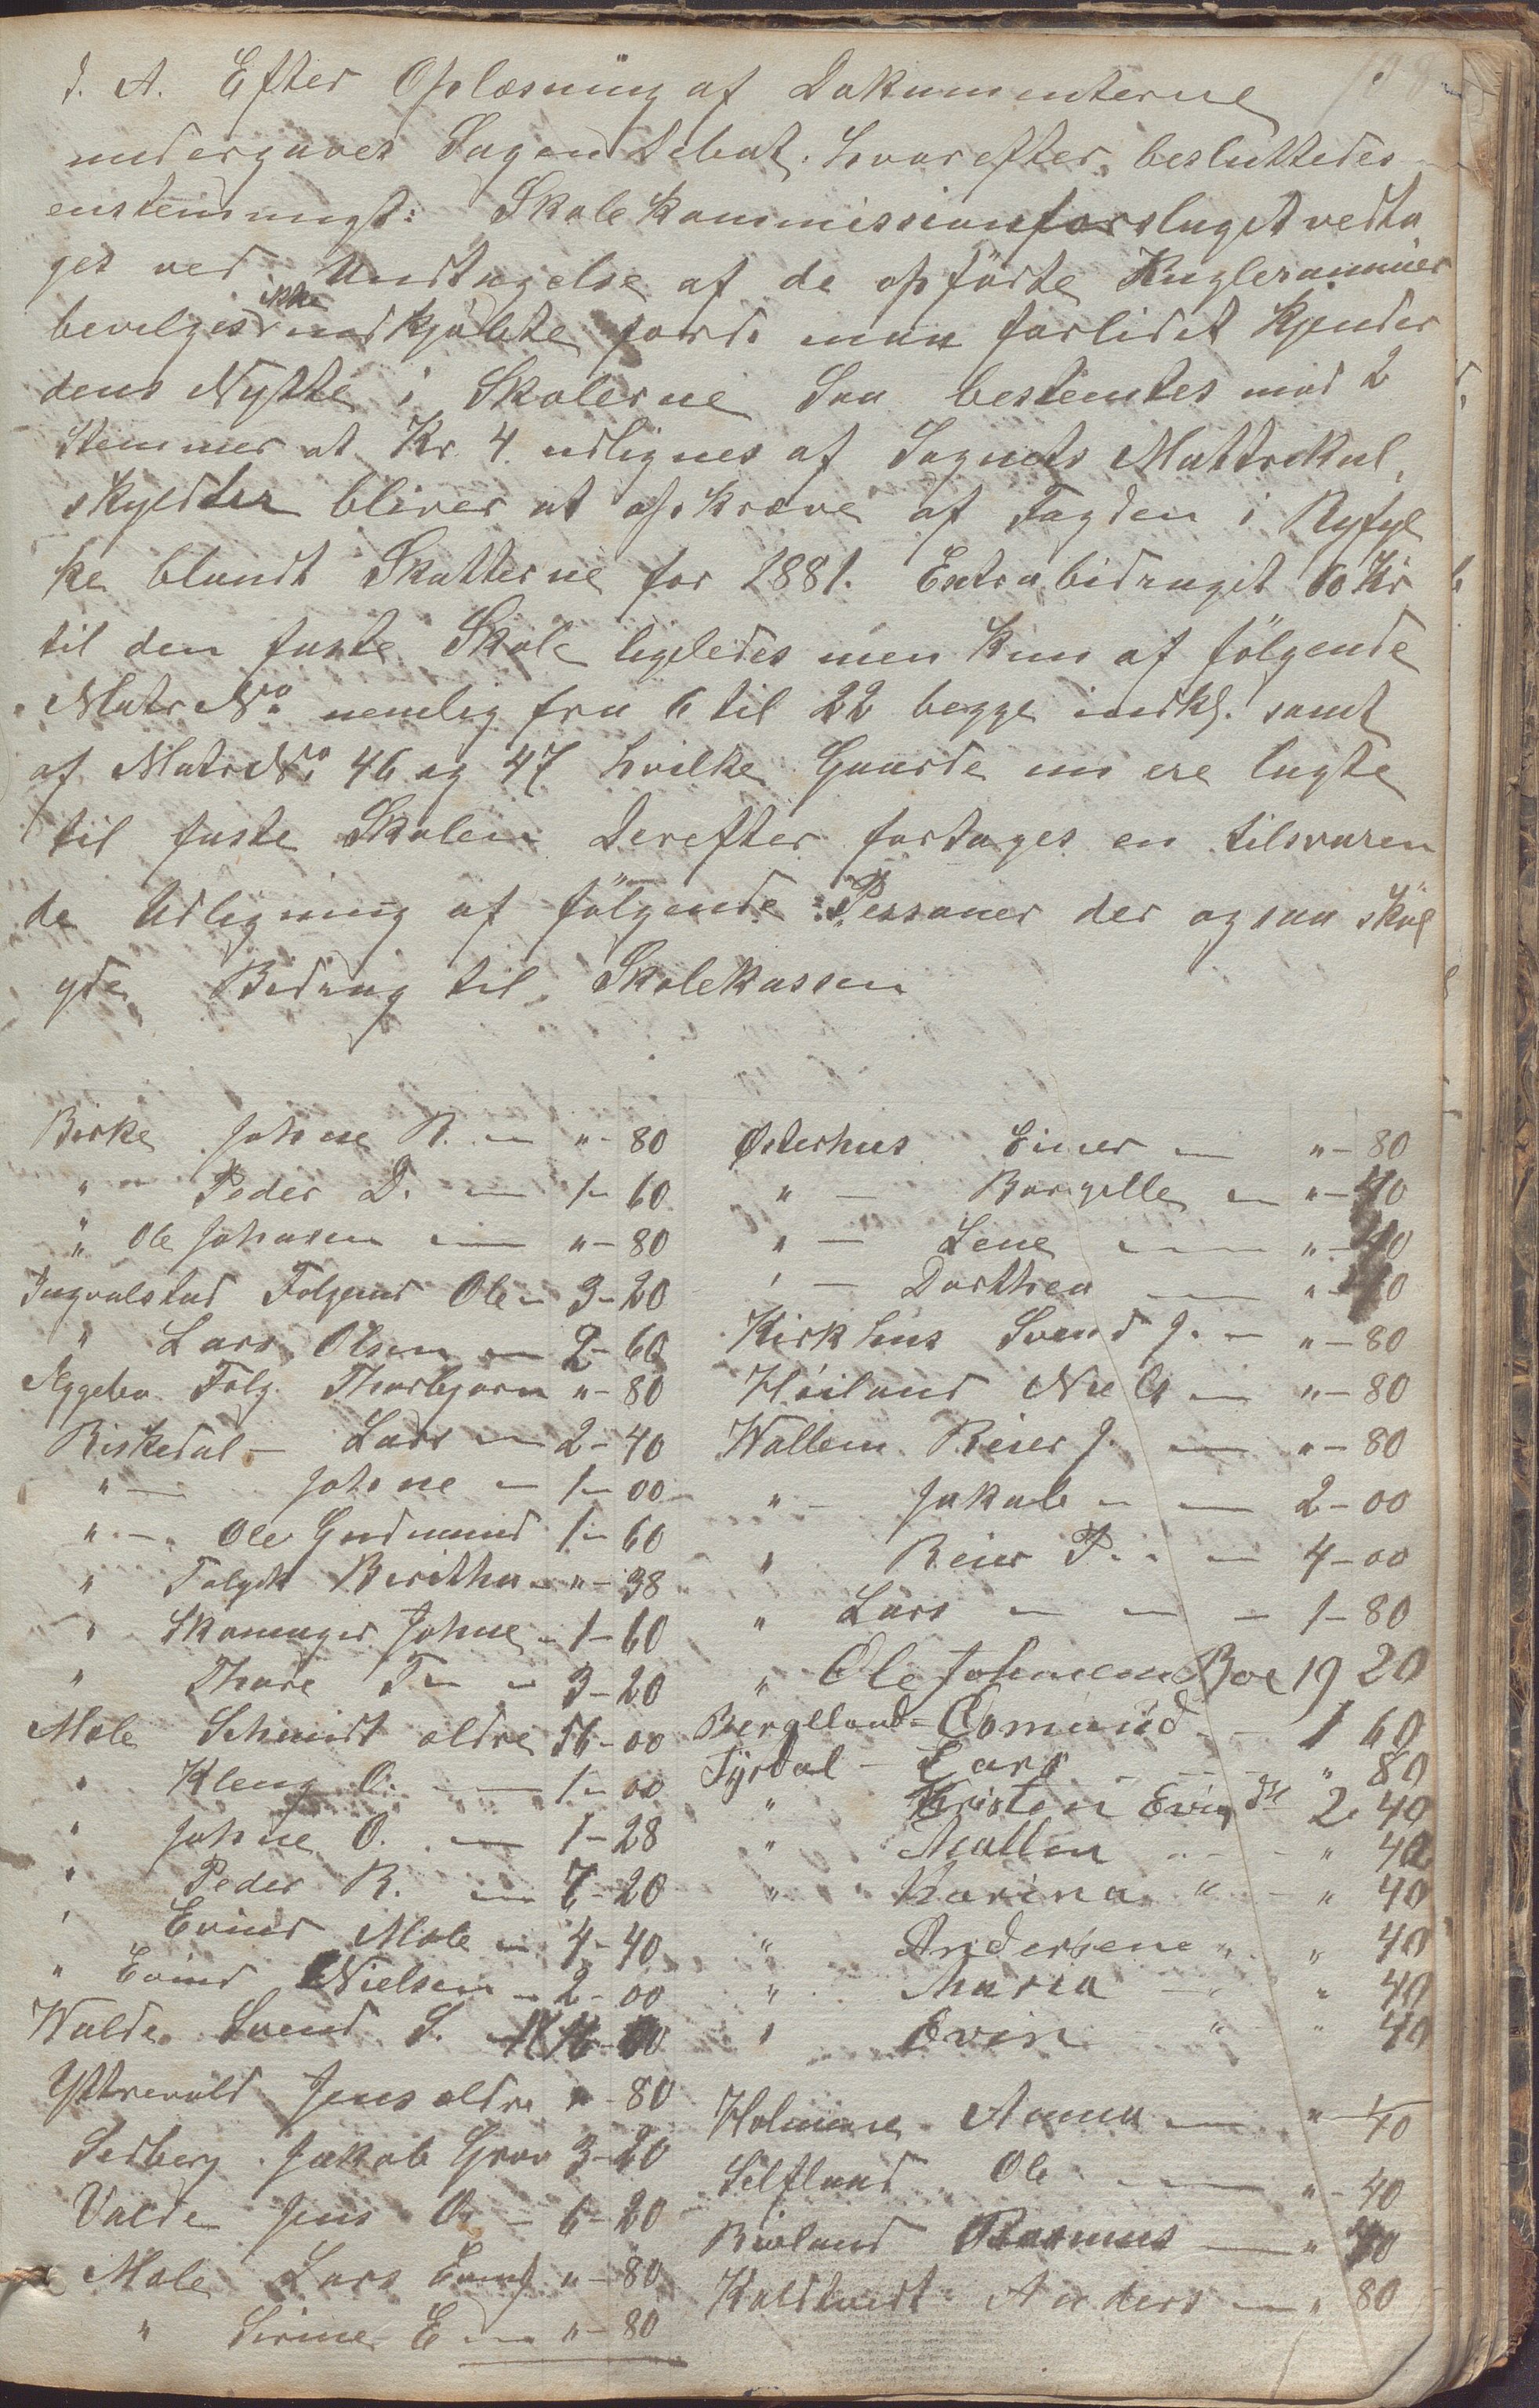 d. A. Efter Oplæsning af Dokumenterne
undergaves Sagen Debat. Hvorefter besluttedes
enstemmigt: Skolekommissionforslaget vedta
get ved Undtagelse af de opførte
bevilges ikke fordi man forlidet kjender
dens Nytte i Skolerne Saa bestemtes mod 2
Stemmer at Kr. 4 udlignes af Sognets Mattrekul
skyld der bliver at opkræve af Fogden i Ryfyl
ke blandt Skatterne for 1881. Extrabidraget 60 Kr
til den faste Skole ligeledes men kun af følgende
Matr No. nemlig fra 6 til 22 begge indkl. samt
af Matr No. 46 og 47 hvilke Gaarde nu ere lagte
til faste Skolen Derefter fortages en tilsvaren
de Udligning af følgende Personer der ogsaa skal
yde Bidrag til Skolekassen
Birke Johne R. — " - 80
" Peder D. — 1 - 60
" Ole Johnsen — " - 80
Ingvalstad Folgemd Ole - 3 - 20
" Lars Olsen — 2 - 60
Folg. Thorbjørn " - 80
Riskedal - Lars — 2 - 40
" — Johne — 1 - 00
" — Ole Gudmund 1 - 60
" Folgek Beritha - " - 38
" Skomager Johne - 1 - 60
" Thore T — 3 - 20
Mæle Schmidt ældre 56 - 00
" Kleng O. — 1 - 00
" Johne O. — 1 - 28
" Peder R. — 7 - 20
" Evind Mæle — 4 - 40
" Evind Nielsen — 2 - 00
Walde Svend S.
Yttrevold Jens ældre " - 80
Sedberg Jakob Grov 3 - 20
Valde Jens O. — 6 - 20
Mæle Lars " - 80
" Sirine E — " - 80
Østerhus Einer — " - 80
" — Borgille — " - 40
" — Lene — " - 40
" — Dorthea — " - 40
Kirkhus Svend J. — " - 80
Høiland Niels — " - 80
Wallem Reier J. — " - 80
" - Jakob — 2 - 00
" Reier P. — 4 - 00
" Lars — — 1 - 80
" Ole Johnsen Boe 19 20
Bergelland - Osmund - - 1 60
Tysdal - Lars - - - " 80
" Kristen 2. 40
" Mallen - - " 40
" Karina " - " 40
" Anderséne " " 40
" Maria - " " 40
" Evin " " 40
Holmene Anna — " - 40
Selfland Ole — " - 40
Bioland Rasmus — " 40
Anders — " 80